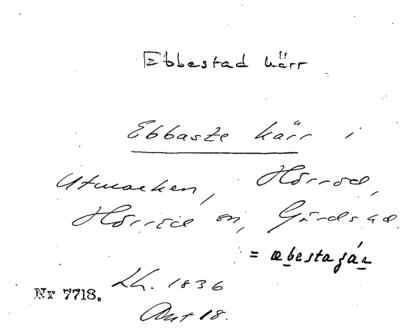 Ebbestad kärr
Ebbaste kärr i
Utmarken, Hörröd,
Hörröd sn, Gärds hd.
= æbesta
Lh. 1836
Nr 7718.
Akt 18.